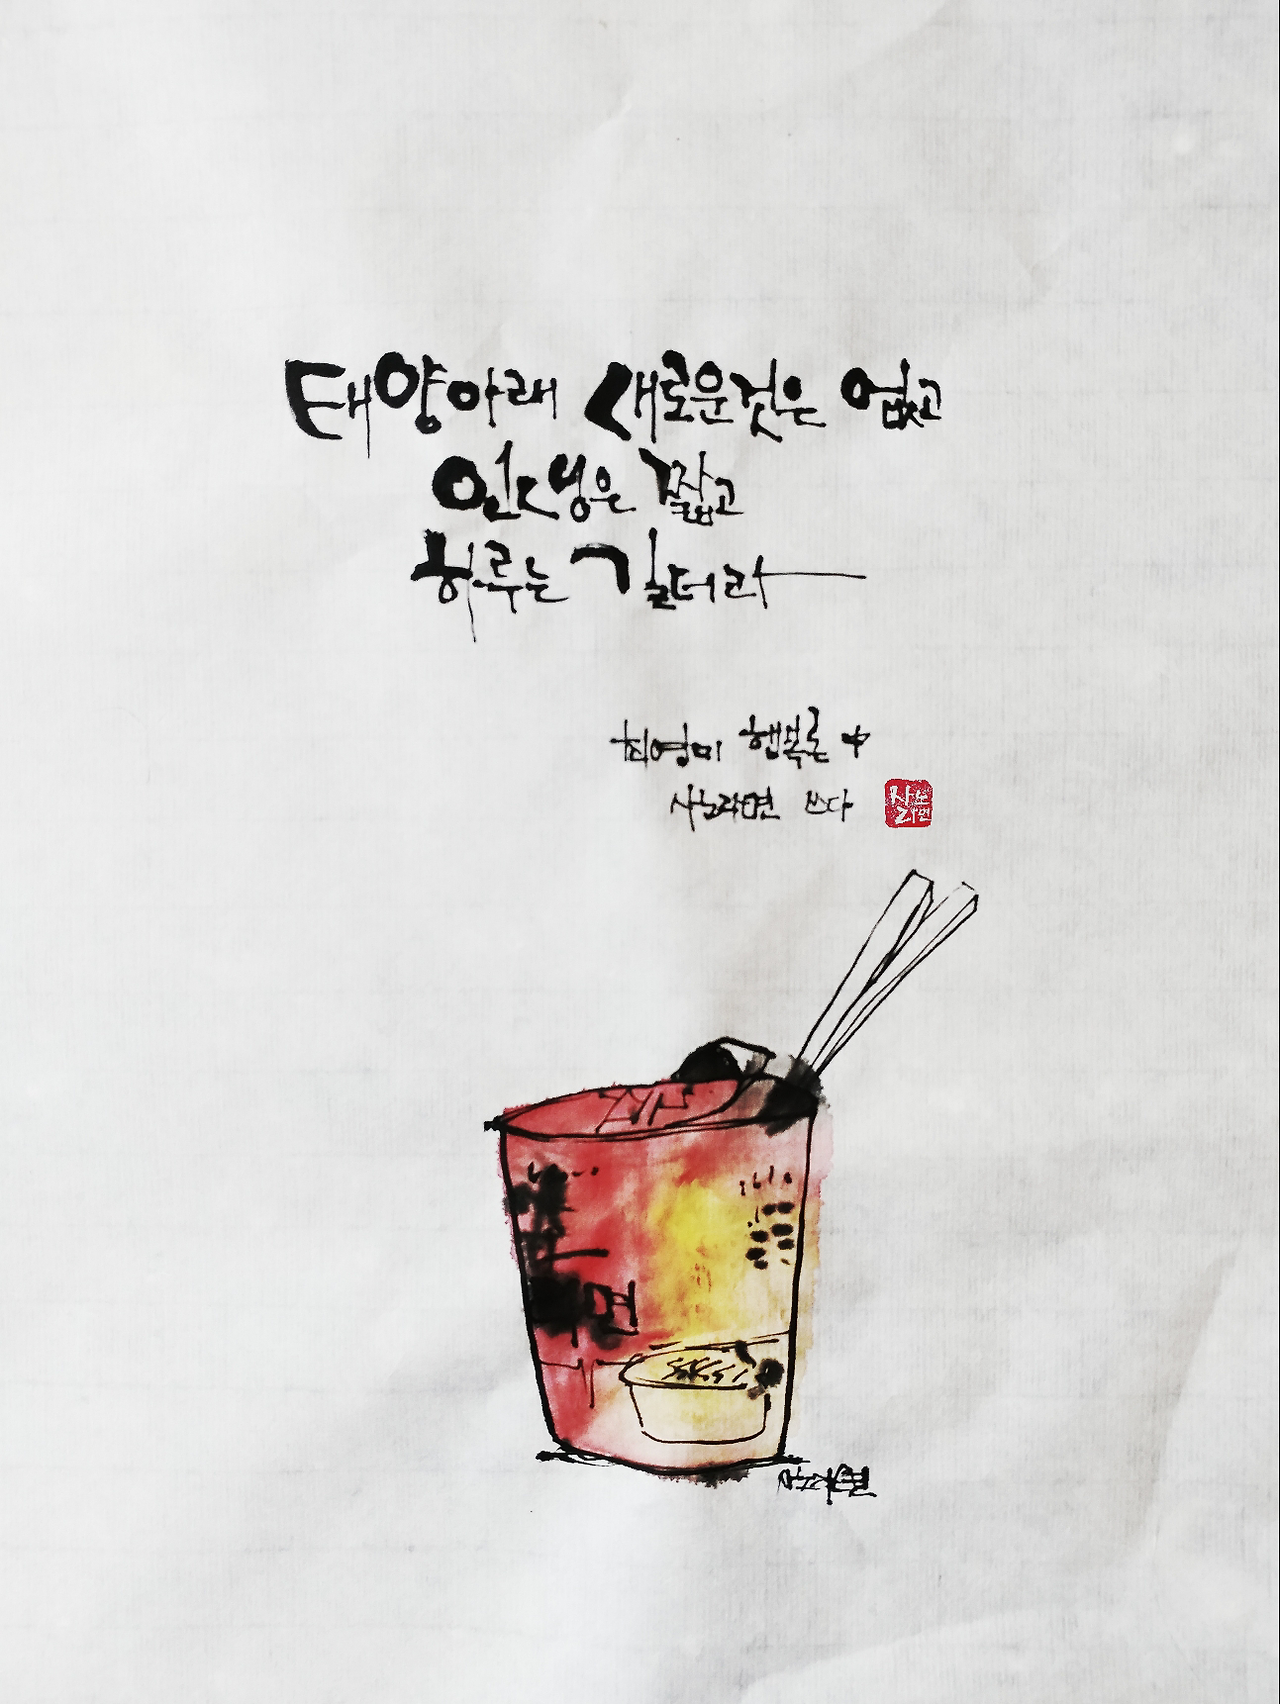 태양아래 새로운것은 없고
인생은 짧고
하루는 길더라
최영미 행복론 中
사노라면 쓰다
사노
라면
사노라면